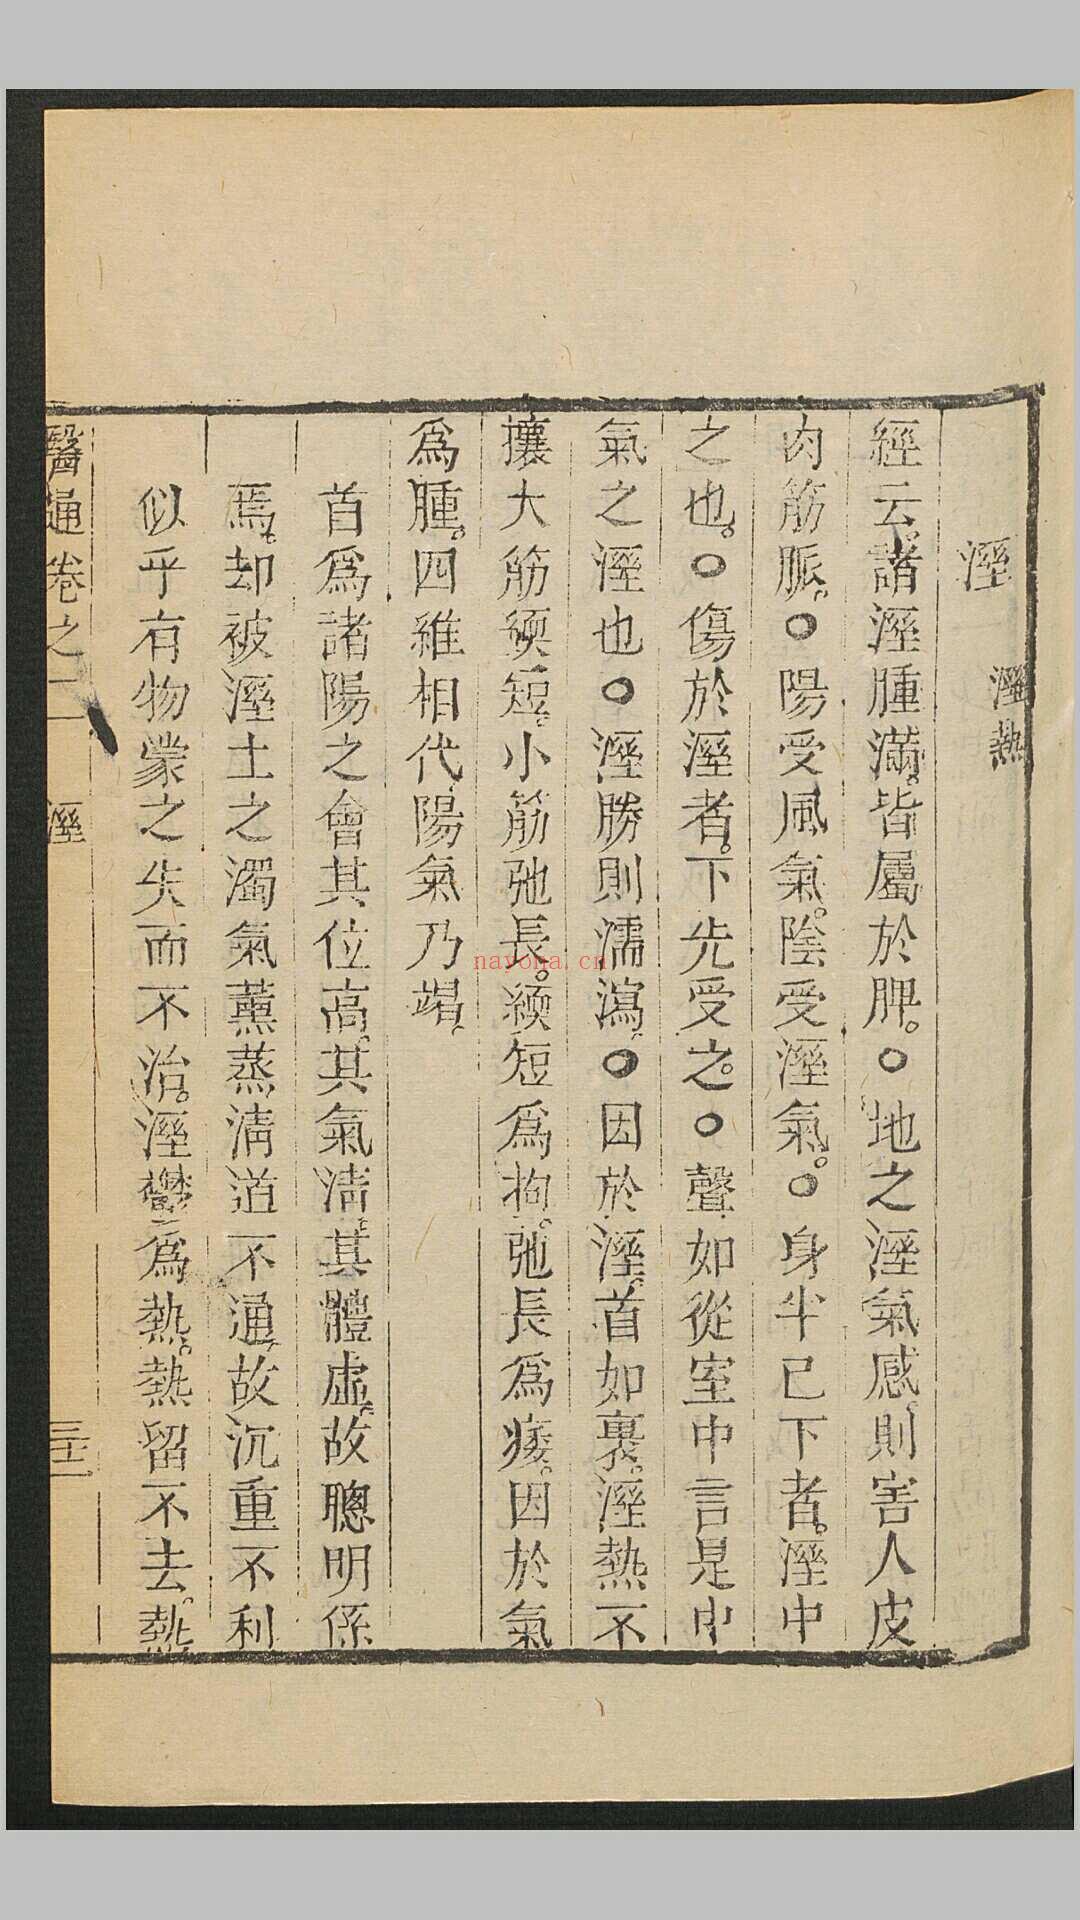 溼　溼熱
經云。諸溼腫滿。皆屬於脾。○地之溼氣感。則害人皮
肉筋脈。○陽受風氣。陰受溼氣。○身半已下者。溼中
之也。○傷於溼者。下先受之。○聲如從室中言是中
氣之溼也○溼勝則濡瀉。○因於溼。首如裹。溼熱不
攘大筋緛短。小筋弛長。緛短爲拘。弛長爲痿。因於氣
爲腫。四維相代。陽氣乃竭。
首爲諸陽之會其位高。其氣淸。其體虛。故聰明係
焉。却被溼土之濁氣薰蒸淸道不通。故沉重不利
似乎有物蒙之失而不治。溼鬱爲熱。熱留不去。熱
醫通卷之二　溼　三十一
nayona.cn